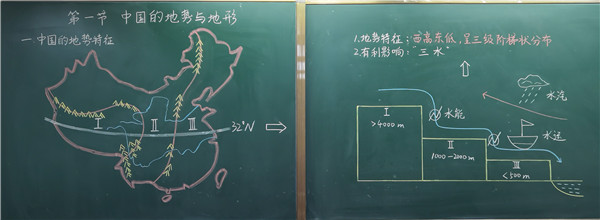 第一节 中国的地势与地形
一 中国的地势特征
Ⅰ
Ⅱ
Ⅲ
32°N
1.地势特征：西高东低，呈三级阶梯状分布
2.有利影响："三水"
水汽
水能
水运
Ⅰ
>4000m
Ⅱ
1000-2000m
Ⅲ
<500m